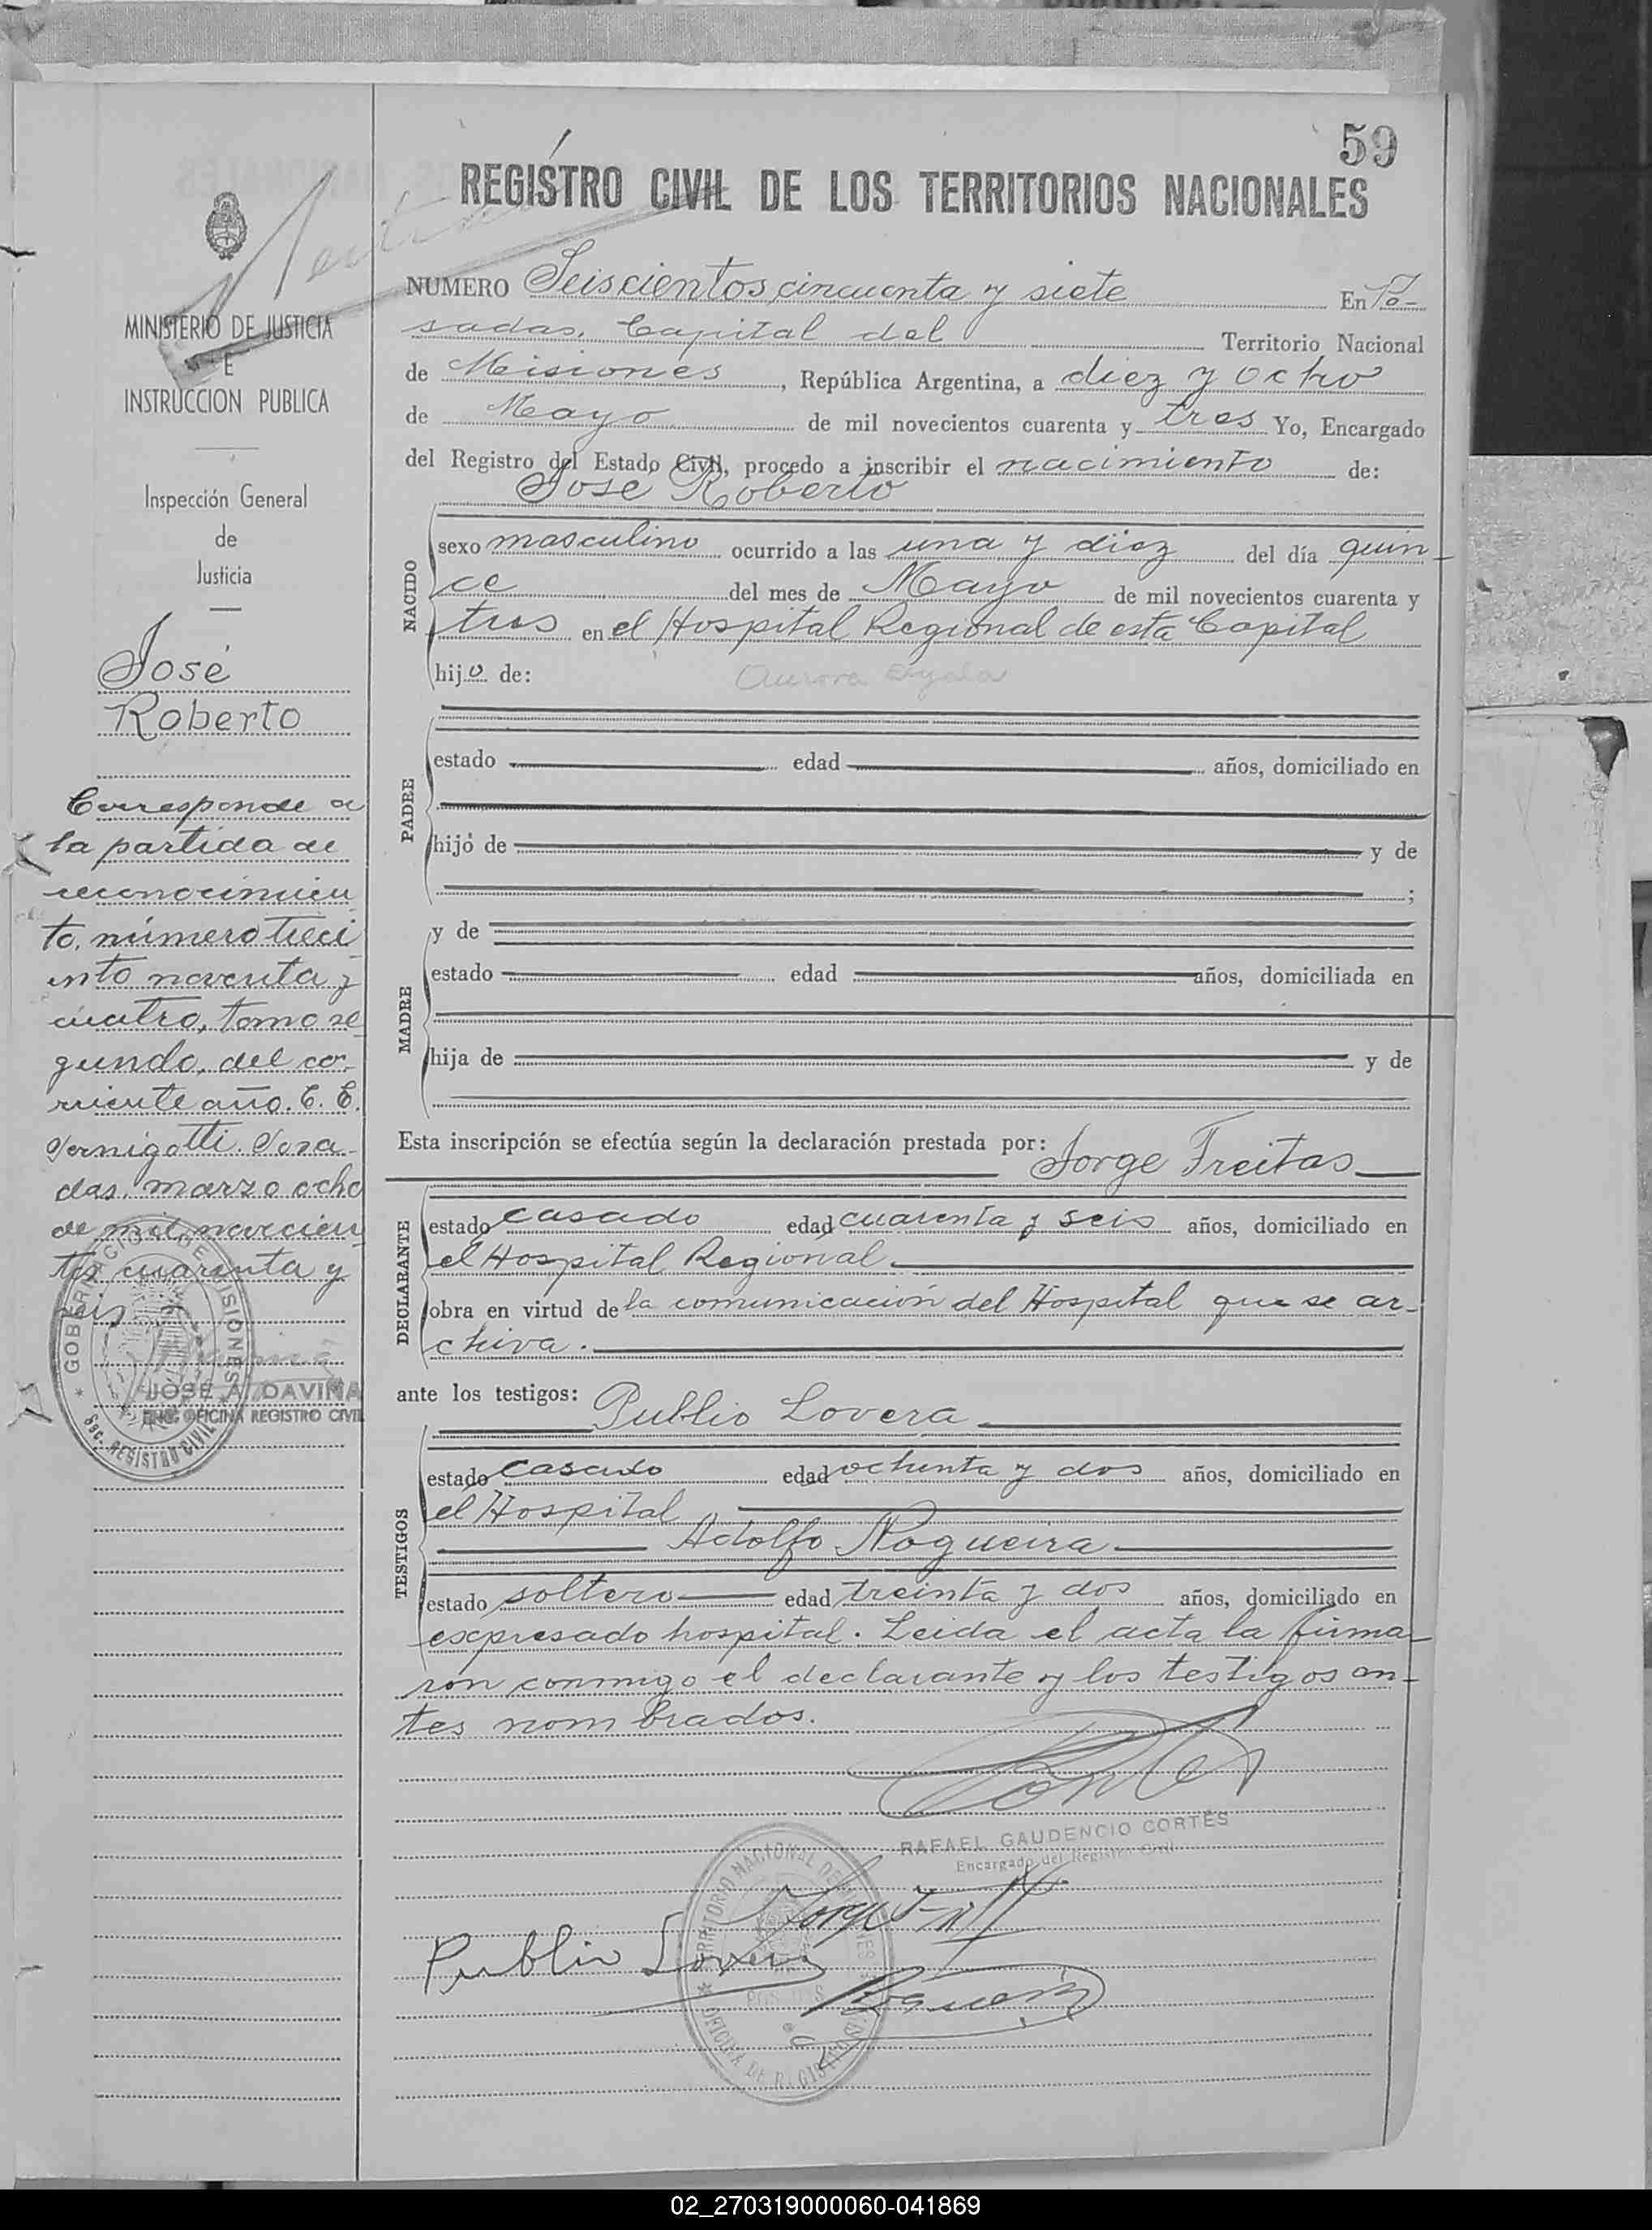 59
REGISTRO CIVIL DE LOS TERRITORIOS NACIONALES
MINISTERIO DE JUSTICIA
E
INSTRUCCION PUBLICA
Inspección General
de
Justicia
José
Roberto
Corresponde a
la partida de
reconocimien
to, número treci
ento noventa y
cuatro, tomo se
gundo, del co-
rriente año. C. E.
Posa-
das, marzo ocho
de mil novecien
tos cuarenta y
seis
GOBERNACION DE MISIONES
Sec. REGISTRO CIVIL
JOSE A. DAVIÑA
ENC. OFICINA REGISTRO CIVIL
NUMERO Seiscientos cincuenta y siete En Po-
sadas, Capital del Territorio Nacional
de Misiones, República Argentina, a diez y ocho
de Mayo de mil novecientos cuarenta y tres Yo, Encargado
del Registro del Estado Civil, procedo a inscribir el nacimiento de:
José Roberto
NACIDO
sexo masculino ocurrido a las una y diez del día quin-
ce del mes de Mayo de mil novecientos cuarenta y
tres en el Hospital Regional de esta Capital
hijo de: Aurora Ayala
PADRE
estado edad años, domiciliado en
hijo de y de
;
y de
MADRE
estado edad años, domiciliada en
hija de y de
Esta inscripción se efectúa según la declaración prestada por: Jorge Freitas
DECLARANTE
estado casado edad cuarenta y seis años, domiciliado en
el Hospital Regional
obra en virtud de la comunicación del Hospital que se ar-
chiva.
ante los testigos: Publio Lovera
TESTIGOS
estado casado edad ochenta y dos años, domiciliado en
el Hospital
Adolfo Nogueira
estado soltero edad treinta y dos años, domiciliado en
expresado hospital. Leida el acta la firma-
ron conmigo el declarante y los testigos an-
tes nombrados.
RAFAEL GAUDENCIO CORTÉS
Encargado del Registro Civil
TERRITORIO NACIONAL DE MISIONES
POSADAS
OFICINA DE REGISTRO
Publio Lovera
02_270319000060-041869